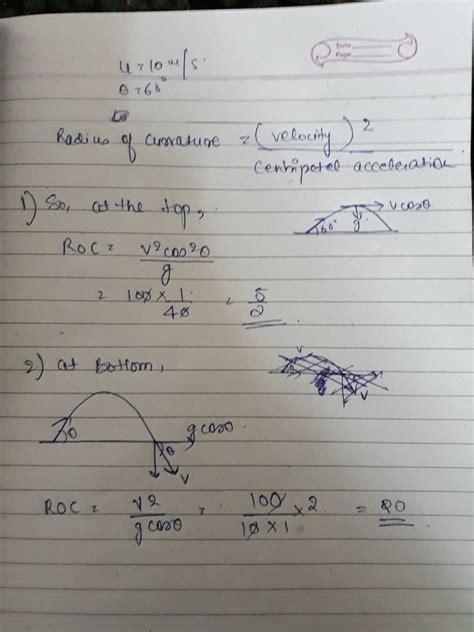 Date
Page
u = 10 m/s
θ = 60°
Radius of curvature = (velocity)²
Centripetal acceleration
1) So, at the top,
v cosθ
60°
g
ROC = v²cos²θ
g
= 100 × 1 = 5
40 2
2) at Bottom,
v
v
g cosθ
θ
θ
v
ROC = v² = 100 × 2 = 20
g cosθ 10 × 1